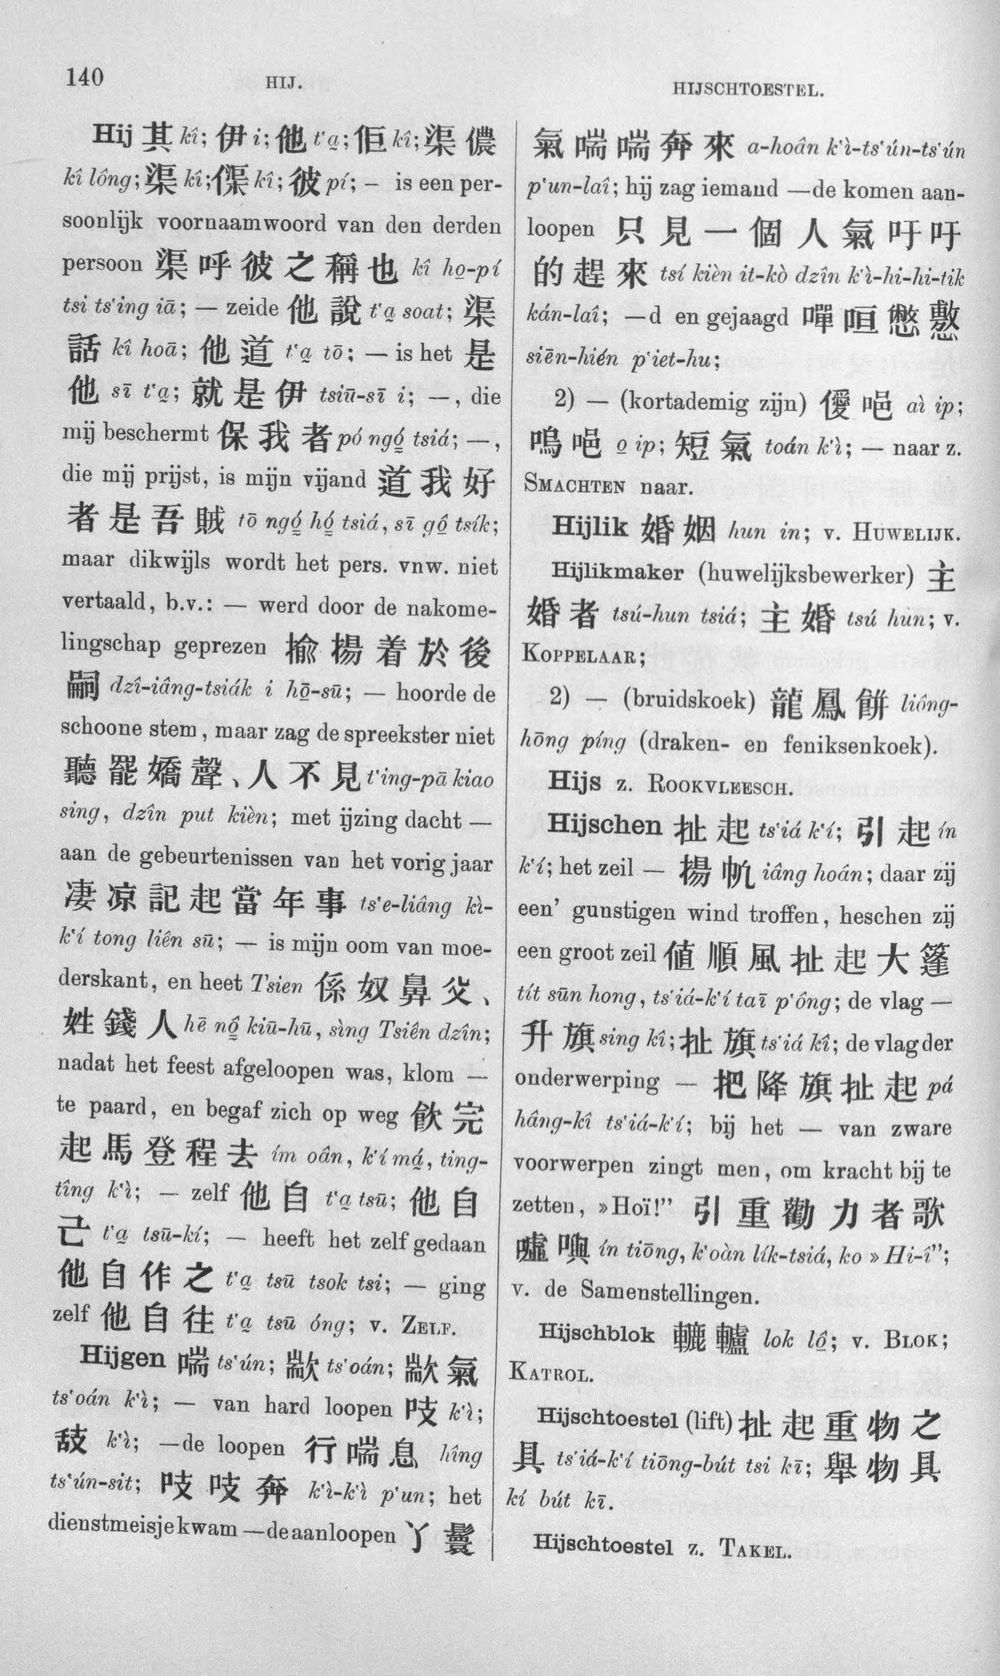 140
HIJ.
HIJSCHTOESTEL.
Hij 其 kî; 伊 i; 他 t‘a̱; 佢 kî; 渠 儂
kî lông; 渠 kî; 㒆 kî; 彼 pí; — is een per-
soonlijk voornaamwoord van den derden
persoon 渠 呼 彼 之 稱 也 kî ho̱-pí
tsi ts‘ing iā; — zeide 他 說 t‘a̱ soat; 渠
話 kî hoā; 他 道 t‘a̱ tō; — is het 是
他 sī t‘a̱; 就 是 伊 tsiū-sī i; —, die
mij beschermt 保 我 者 pó ngó̱ tsiá; —,
die mij prijst, is mijn vijand 道 我 好
者 是 吾 賊 tō ngó̱ hó̱ tsiá, sī gô̱ tsík;
maar dikwijls wordt het pers. vnw. niet
vertaald, b.v.: — werd door de nakome-
lingschap geprezen 揄 揚 着 於 後
嗣 dzî-iâng-tsiák i hō̱-sū; — hoorde de
schoone stem, maar zag de spreekster niet
聽 罷 嬌 聲、人 不 見 t‘ing-pā kiao
sing, dzîn put kièn; met ijzing dacht —
aan de gebeurtenissen van het vorig jaar
凄 凉 記 起 當 年 事 ts‘e-liâng kì-
k‘í tong liên sū; — is mijn oom van moe-
derskant, en heet Tsien 係 奴 鼻 父、
姓 錢 人 hē nô̱ kiū-hū, sìng Tsiên dzîn;
nadat het feest afgeloopen was, klom —
te paard, en begaf zich op weg 飮 完
起 馬 登 程 去 ím oân, k‘í má̱, ting-
tîng k‘ì; — zelf 他 自 t‘a̱ tsū; 他 自
己 t‘a̱ tsū-kí; — heeft het zelf gedaan
他 自 作 之 t‘a̱ tsū tsok tsi; — ging
zelf 他 自 往 t‘a̱ tsū óng; v. ZELF.
Hijgen 喘 ts‘ún; 歂 ts‘oán; 歂 氣
ts‘oán k‘ì; — van hard loopen 吱 k‘ì;
k‘ì; —de loopen 行 喘 息 hîng
ts‘ún-sit; 吱 吱 奔 k‘ì-k‘ì p‘un; het
dienstmeisje kwam —de aanloopen 丫 鬟
氣 喘 喘 奔 來 a-hoân k‘ì-ts‘ún-ts‘ún
p‘un-laî; hij zag iemand —de komen aan-
loopen 只 見 一 個 人 氣 吁 吁
的 趕 來 tsí kièn it-kò dzîn k‘ì-hi-hi-tik
kán-laî; —d en gejaagd 嘽 咺 憋 懯
siēn-hién p‘iet-hu;
2) — (kortademig zijn) 僾 唈 aì ip;
嗚 唈 o̱ ip; 短 氣 toán k‘ì; — naar z.
SMACHTEN naar.
Hijlik 婚 姻 hun in; v. HUWELIJK.
Hijlikmaker (huwelijksbewerker) 主
婚 者 tsú-hun tsiá; 主 婚 tsú hun; v.
KOPPELAAR;
2) — (bruidskoek) 龍 鳳 餅 liông-
hōng píng (draken- en feniksenkoek).
Hijs z. ROOKVLEESCH.
Hijschen 扯 起 ts‘iá k‘í; 引 起 ín
k‘í; het zeil — 揚 帆 iâng hoán; daar zij
een’ gunstigen wind troffen, heschen zij
een groot zeil 値 順 風 扯 起 大 篷
tít sūn hong, ts‘iá-k‘í taī p‘ông; de vlag —
升 旗 sing kî; 扯 旗 ts‘iá kî; de vlag der
onderwerping — 把 降 旗 扯 起 pá
hâng-kî ts‘iá-k‘í; bij het — van zware
voorwerpen zingt men, om kracht bij te
zetten, »Hoï!” 引 重 勸 力 者 歌
嘘 噢 ín tiōng, k‘oàn lík-tsiá, ko »Hi-î”;
v. de Samenstellingen.
Hijschblok 轆 轤 lok lô̱; v. BLOK;
KATROL.
Hijschtoestel (lift) 扯 起 重 物 之
具 ts‘iá-k‘í tiōng-bút tsi kī; 舉 物 具
kí bút kī.
Hijschtoestel z. TAKEL.